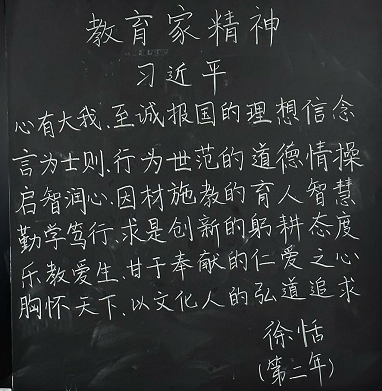 教育家精神
习近平
心有大我、至诚报国的理想信念
言为士则、行为世范的道德情操
启智润心、因材施教的育人智慧
勤学笃行、求是创新的躬耕态度
乐教爱生、甘于奉献的仁爱之心
胸怀天下、以文化人的弘道追求
徐恬
(第二年)